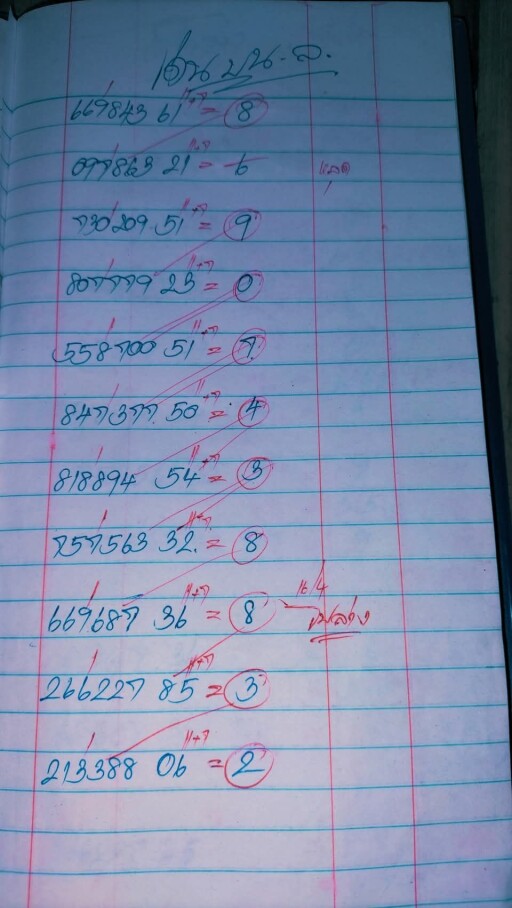 เด่น บน.ล.
669843 61 11+7 = 8
097863 21 11+7 = 6
730209 51 11+7 = 9
807779 23 11+7 = 0
558700 51 11+7 = 7
847377 50 11+7 = 4
818894 54 11+7 = 3
757563 32 11+7 = 8
16/4
669687 36 11+7 = 8
266227 85 11+7 = 3
213388 06 11+7 = 2